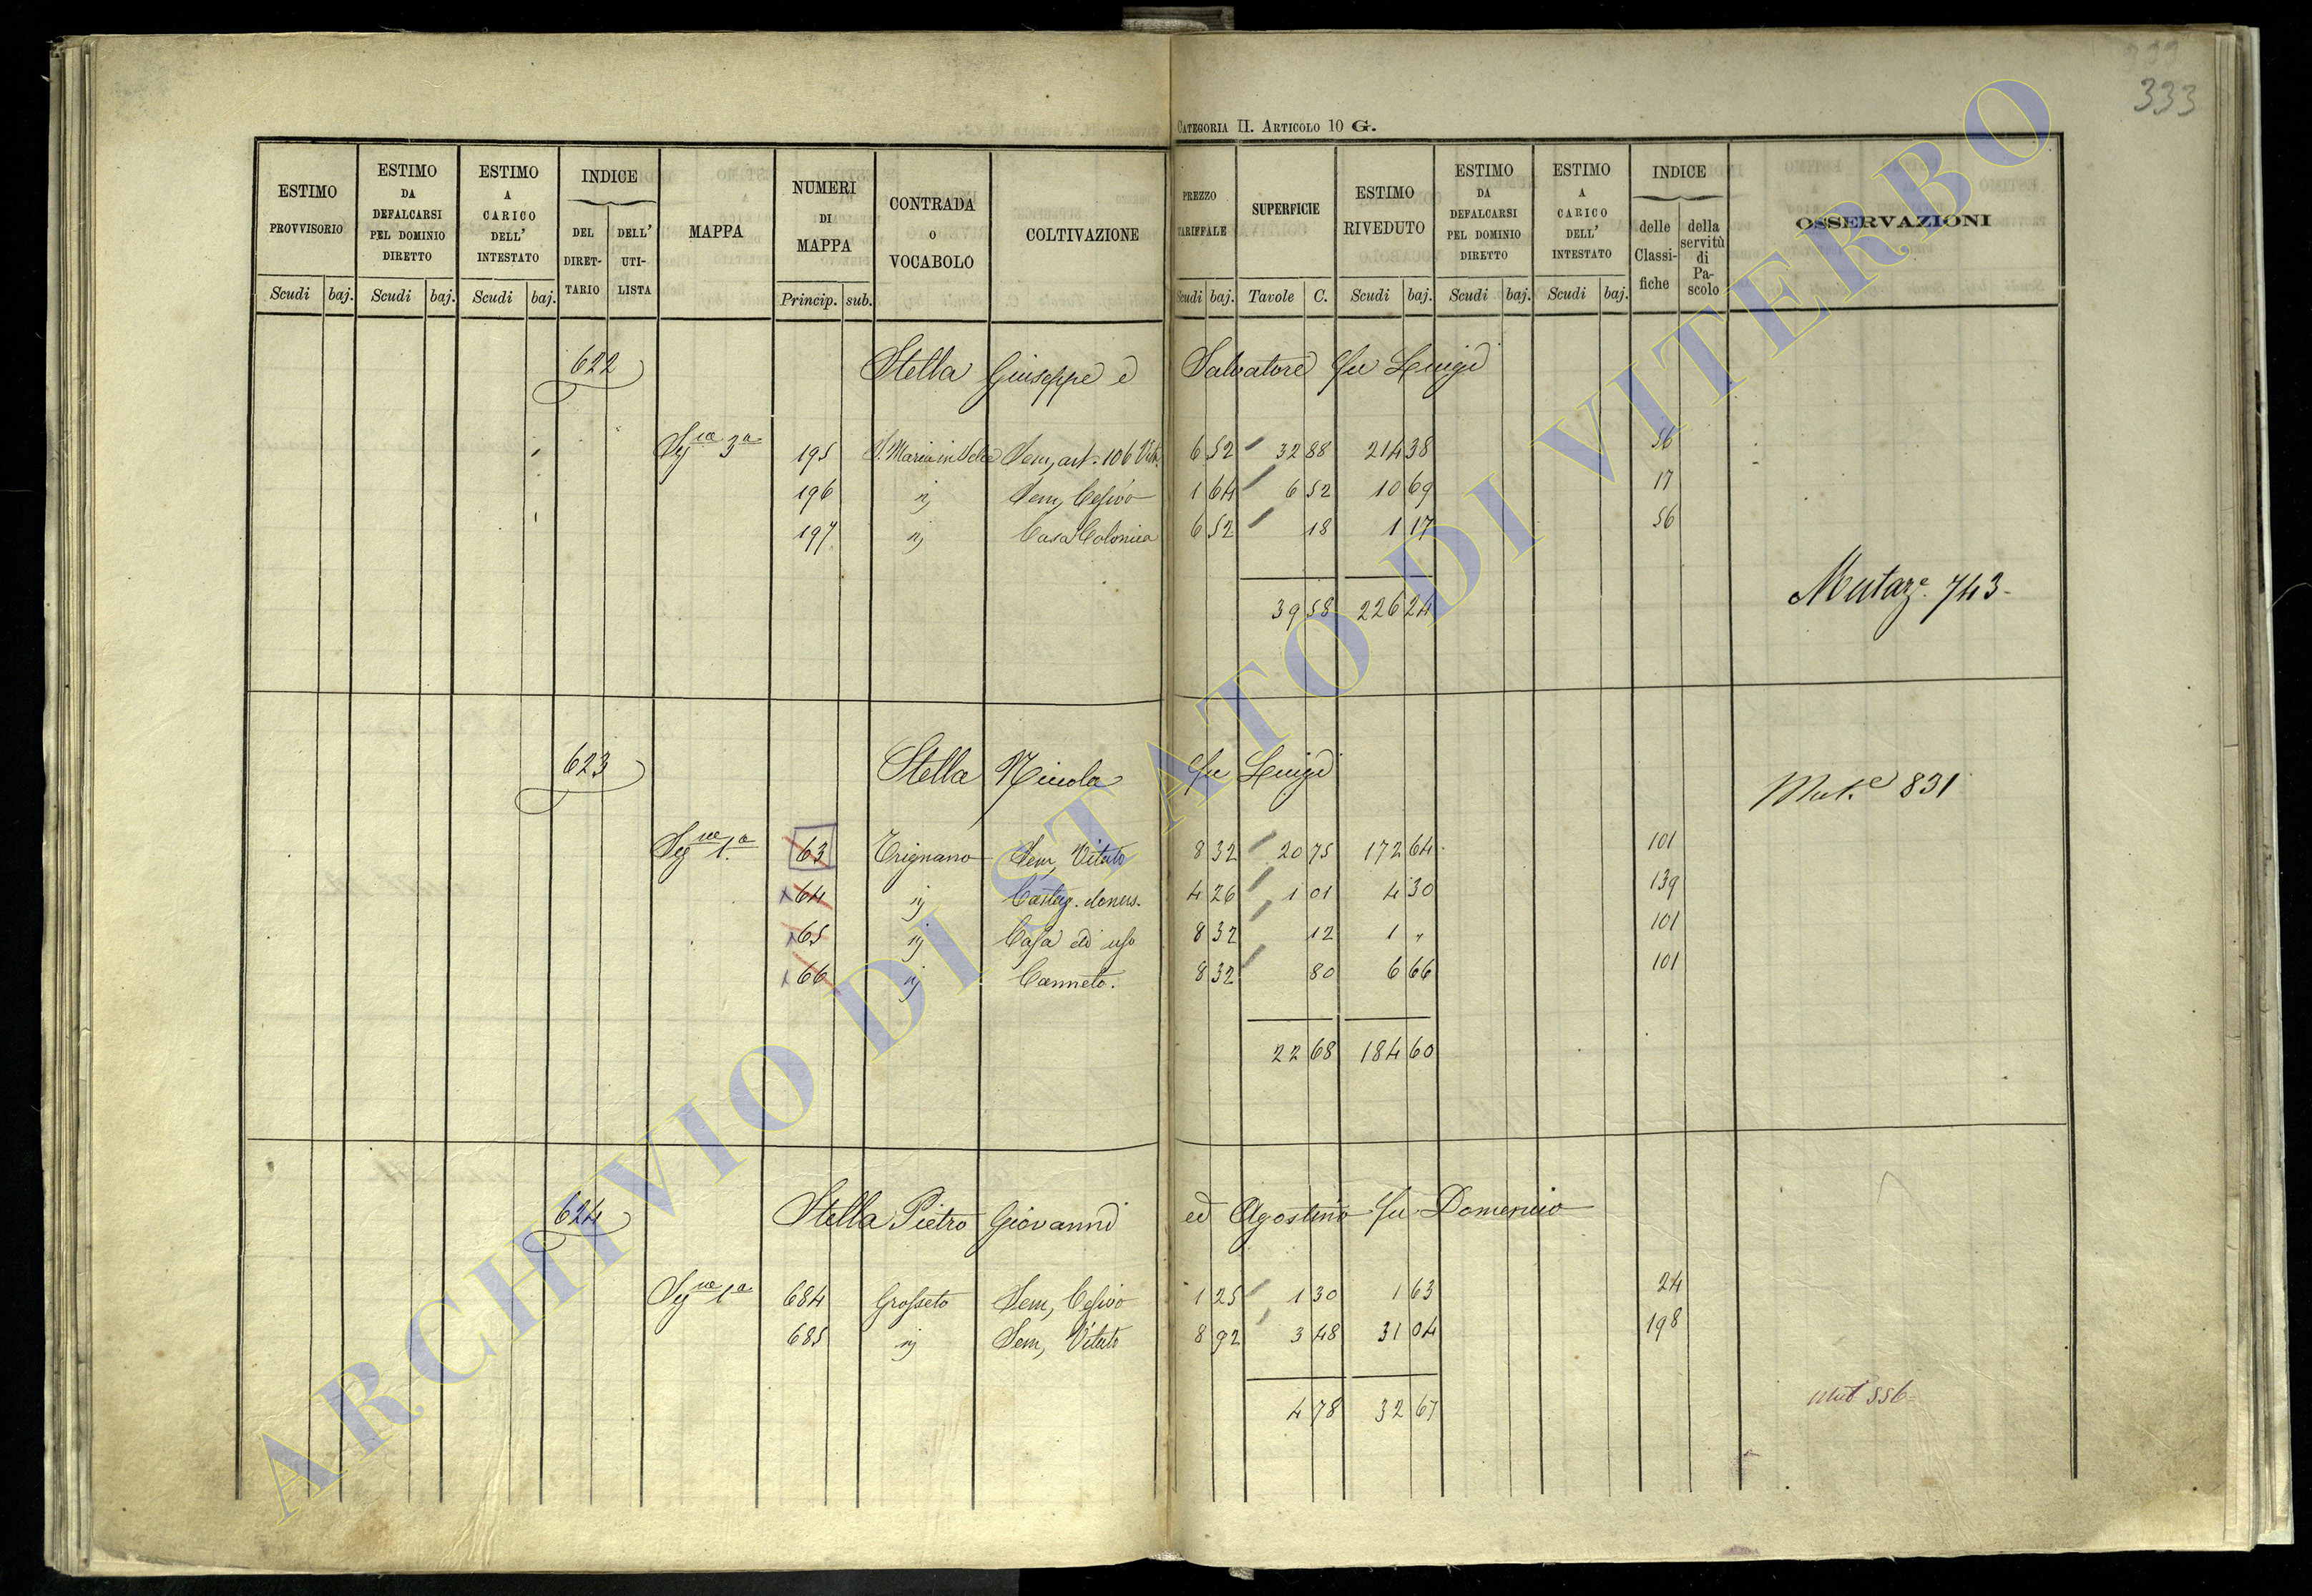 333
CATEGORIA II. ARTICOLO 10 G.
ESTIMO PROVVISORIO
ESTIMO DA DEFALCARSI PEL DOMINIO DIRETTO
ESTIMO A CARICO DELL' INTESTATO
INDICE
DEL DIRETTARIO
DELL' UTILISTA
MAPPA
NUMERI DI MAPPA
CONTRADA O VOCABOLO
COLTIVAZIONE
PREZZO TARIFFALE
SUPERFICIE
ESTIMO RIVEDUTO
ESTIMO DA DEFALCARSI PEL DOMINIO DIRETTO
ESTIMO A CARICO DELL' INTESTATO
INDICE
delle Classifiche
della servitù di Pascolo
OSSERVAZIONI
Scudi baj. Scudi baj. Scudi baj. Princip. sub. Scudi baj. Tavole C. Scudi baj. Scudi baj. Scudi baj.
622 Stella Giuseppe e Salvatore fu Luigi
Sqne 3a 195 S. Maria in Selce Sem, art. 106 Vit. 6 52 32 88 214 38 56
196 " Sem, Cesivo 1 64 6 52 10 69 17
197 " Casa Colonica 6 52 18 1 17 56
39 58 226 24
Mutaze. 743
623 Stella Nicola fu Luigi
Mut.e 831
Sqne 1a 63 Trignano Sem, Vitato 8 32 20 75 172 64 101
64 " Castag. domes. 4 26 1 01 4 30 139
65 " Casa ad uso 8 32 12 1 " 101
66 " Canneto. 8 32 80 6 66 101
22 68 184 60
624 Stella Pietro Giovanni ed Agostino fu Domenico
Sqne 1a 684 Grosseto Sem, Cesivo 1 25 1 30 1 63 24
685 " Sem, Vitato 8 92 3 48 31 04 198
4 78 32 67
Mut 556
ARCHIVIO DI STATO DI VITERBO